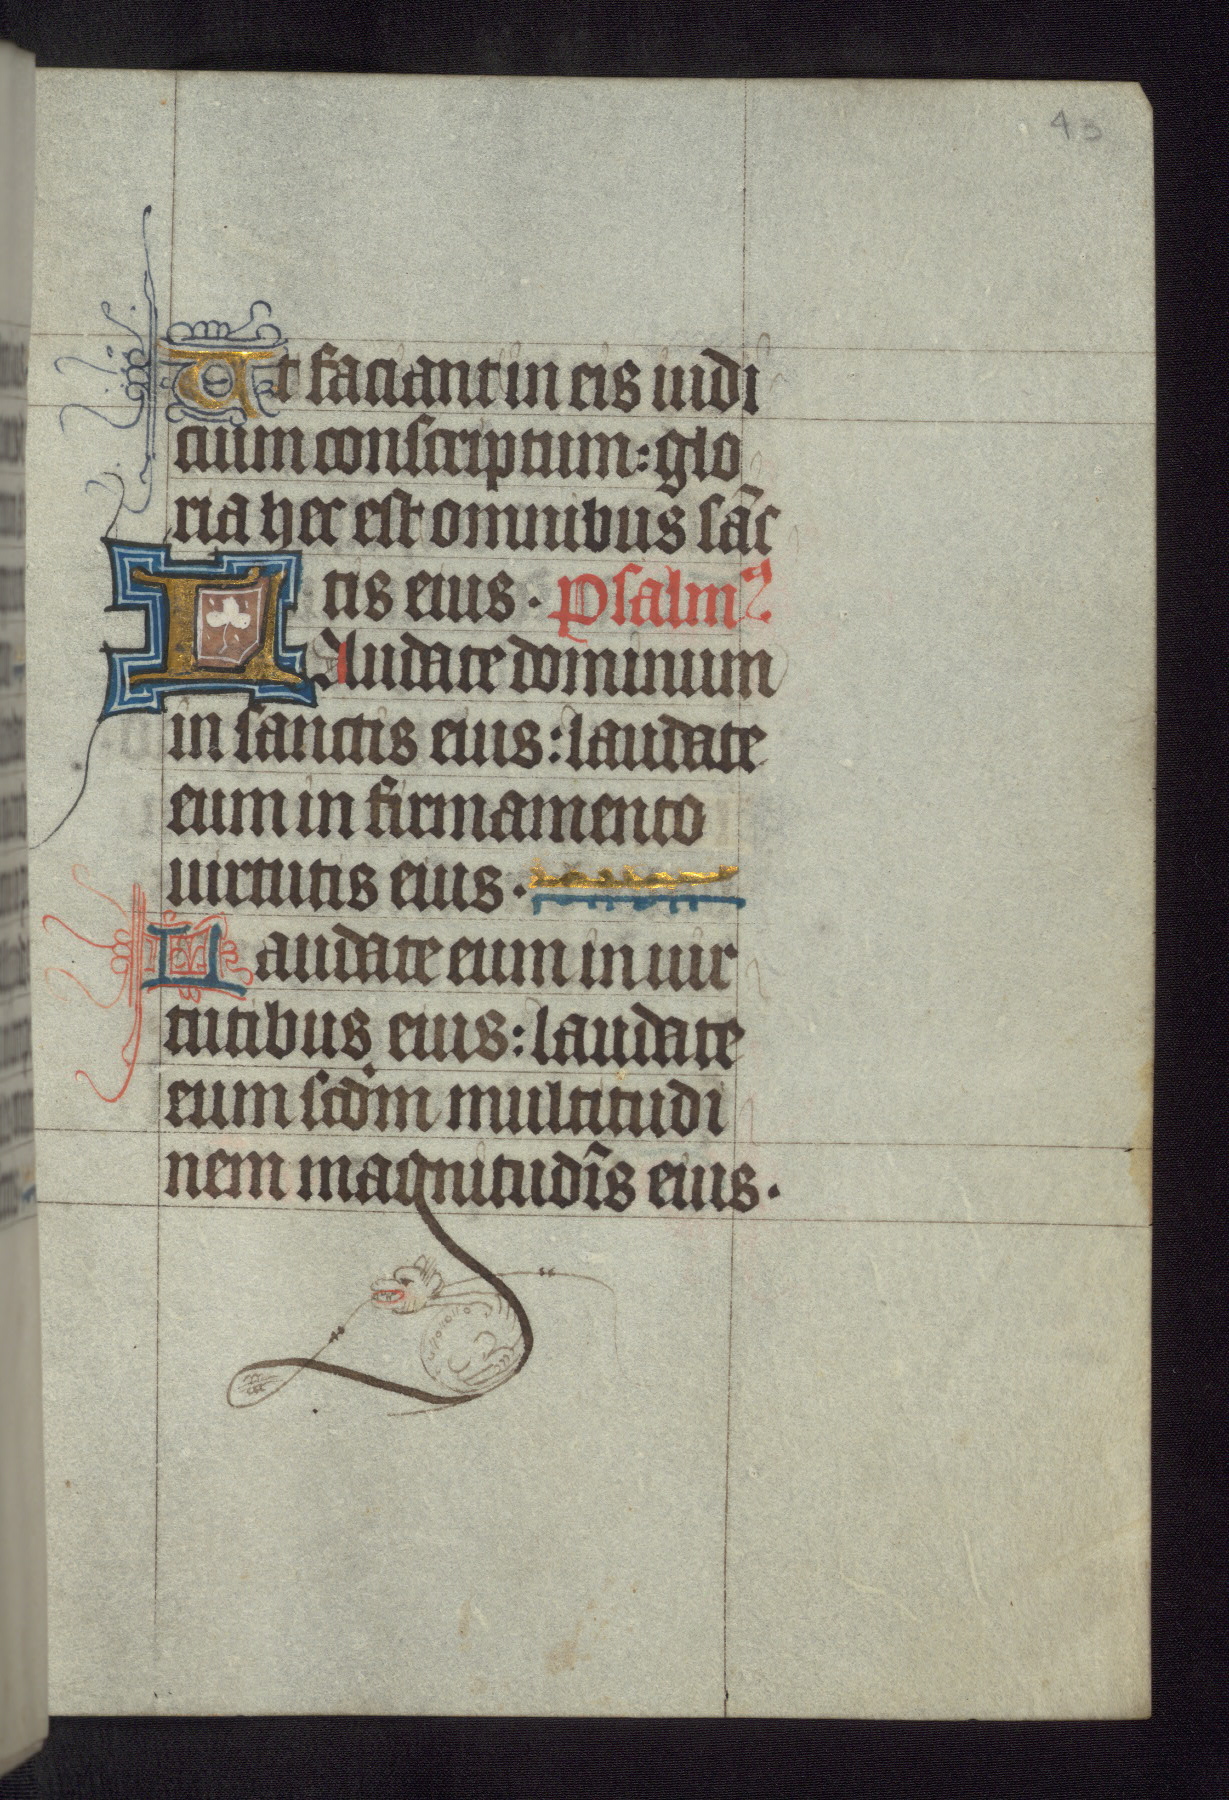 43
Ut faciant in eis iudi
cium conscriptum: glo
ria hec est omnibus sāc
tis eius. Psalmꝰ
Laudate dominum
in sanctis eius: laudate
eum in firmamento
uirtutis eius.
Laudate eum in uir
tutibus eius: laudate
eum scdm multitudi
nem magnitudīs eius.